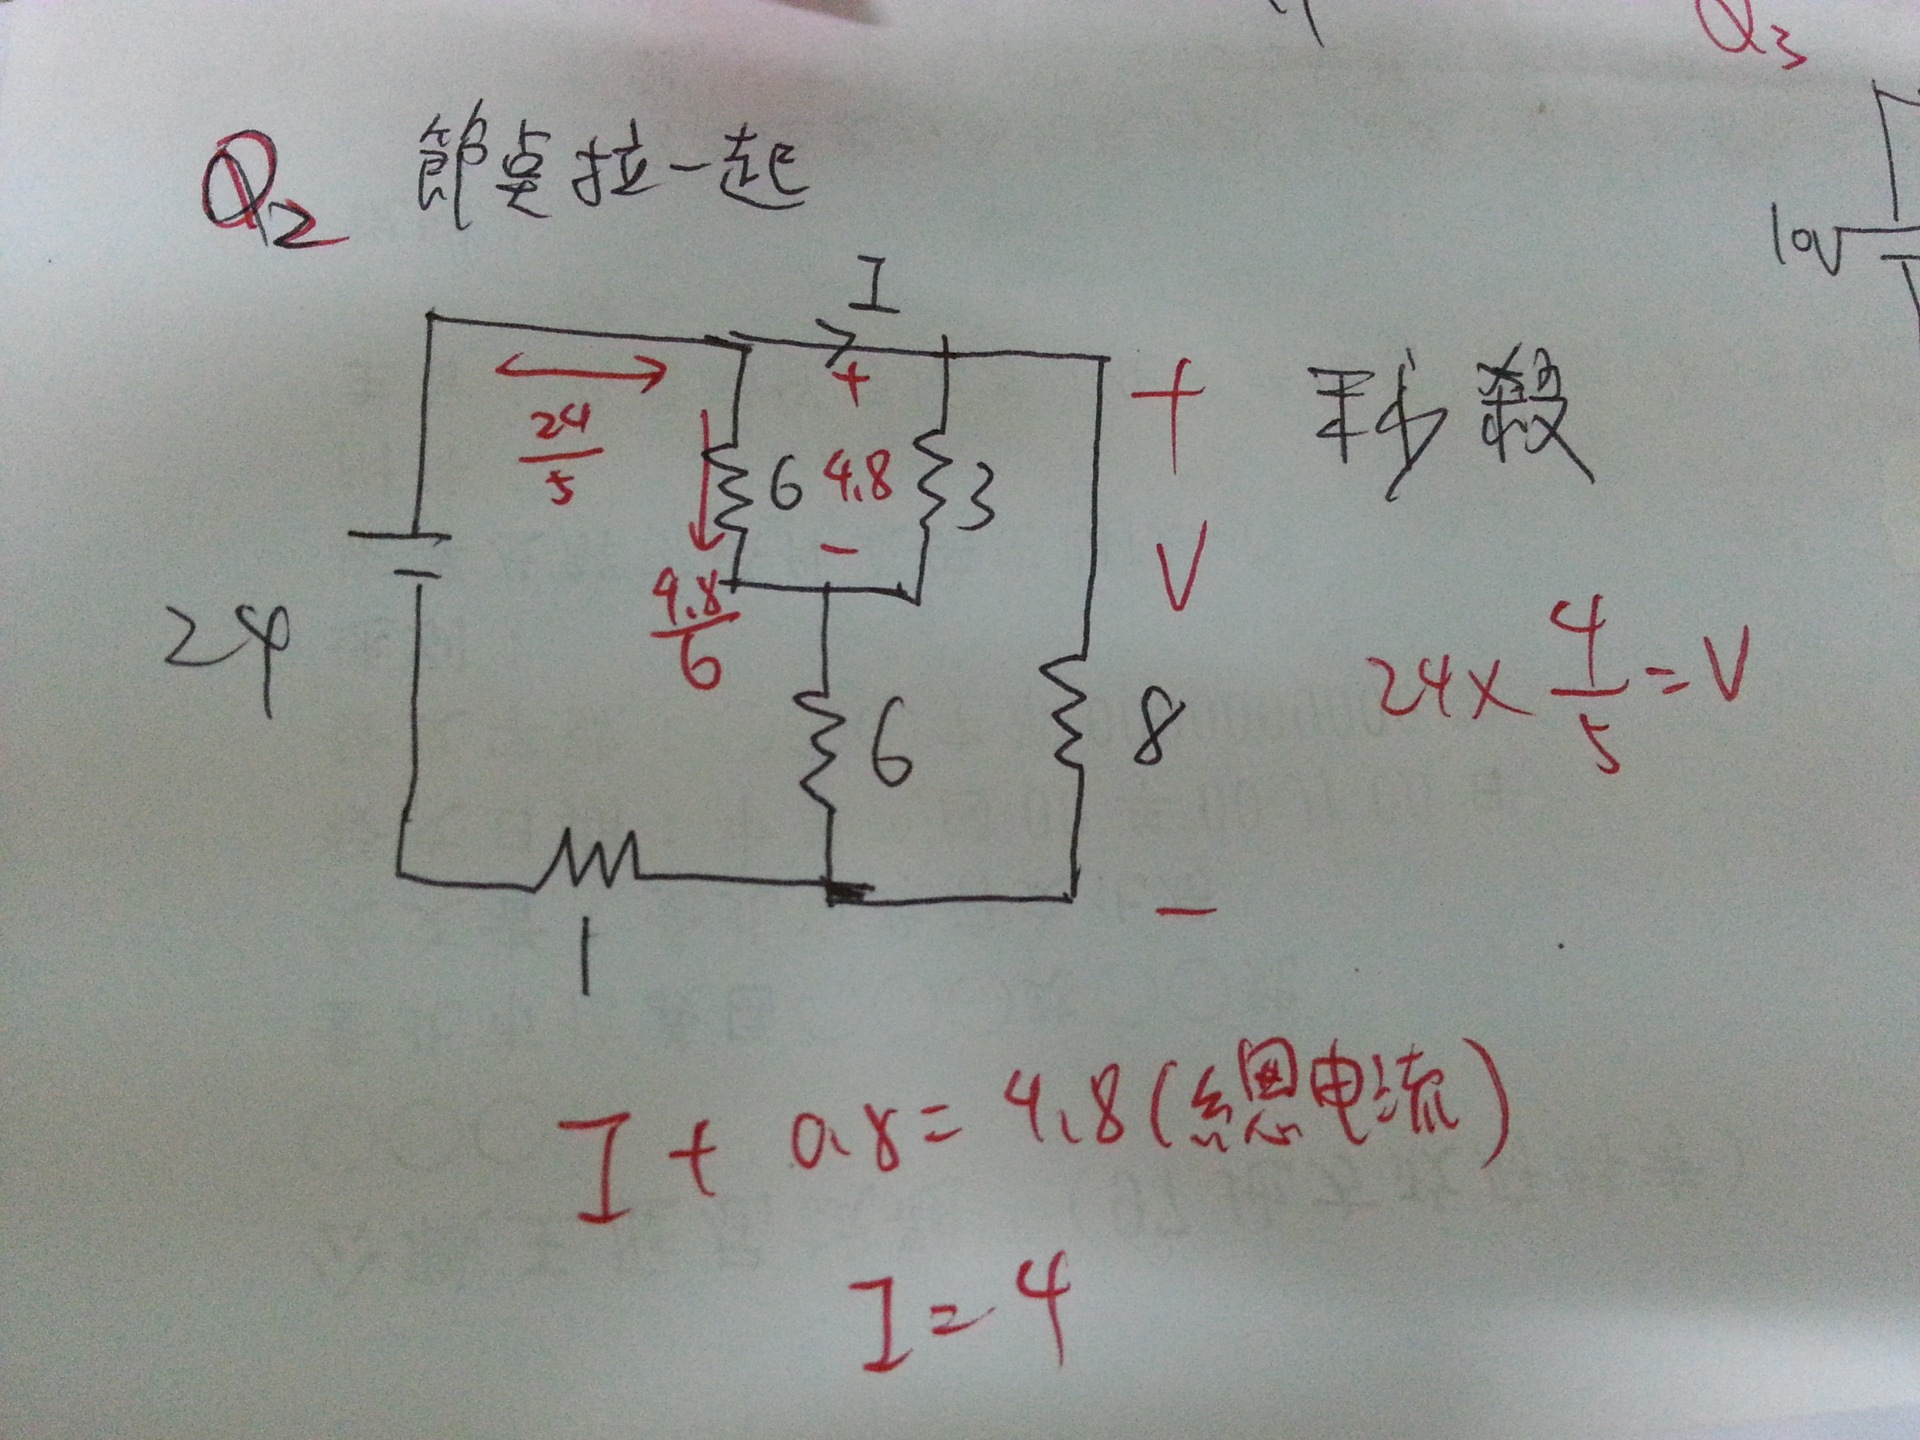 Q3
Q2 節奌拉一起
10V
I
+
+
秒殺
24/5
6
4.8
3
-
V
4.8/6
24
24×4/5=V
6
8
-
1
I + 0.8 = 4.8(總電流)
I = 4